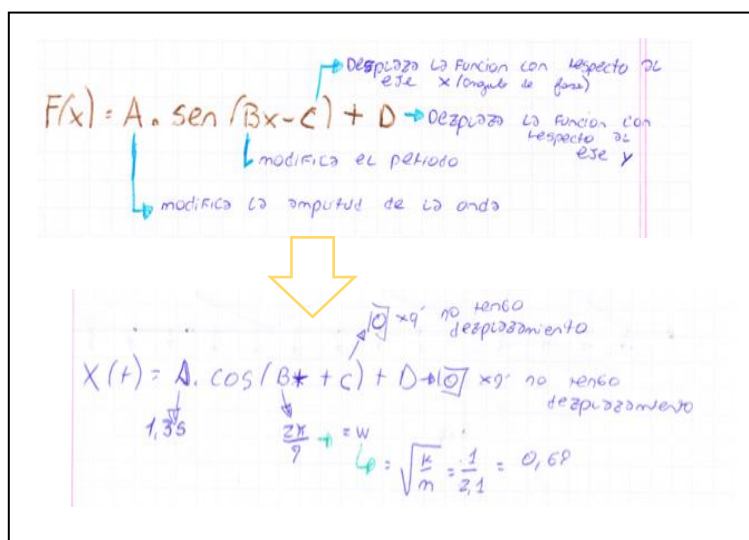 Desplaza la Funcion con respecto al
eje x (angulo de fase)
F(x) = A. sen (Bx - C) + D → Dezplaza la Funcion con
respecto al
eje y
modifica el periodo
modifica la amplitud de la onda
0 xq' no tengo
dezplazamiento
X(t) = A. cos(Bt + C) + D → 0 xq' no tengo
dezplazamiento
1,35
= w
= √(k/m) = 1/2,1 = 0,69